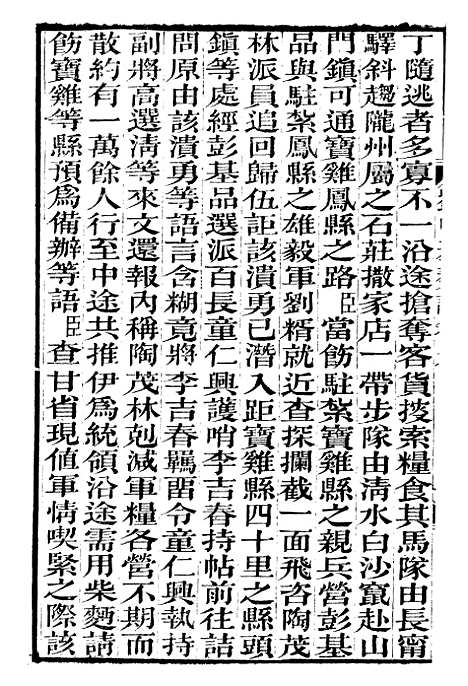 丁隨逃者多寡不一沿途搶奪客貨搜索糧食其馬隊由長甯
驛斜趨隴州屬之石莊撒家店一帶步隊由清水白沙竄赴山
門鎮可通寶雞鳳縣之路臣當飭駐紮寶雞縣之親兵營彭基
品與駐紮鳳縣之雄毅軍劉糈就近查探攔截一面飛咨陶茂
林派員追回歸伍詎該潰勇已潛入距寶雞縣四十里之縣頭
鎮等處經彭基品選派百長童仁興護哨李吉春持帖前往詰
問原由該潰勇等語言含糊竟將李吉春羈畱令童仁興執持
副將高選淸等來文還報內稱陶茂林剋減軍糧各營不期而
散約有一萬餘人行至中途共推伊爲統領沿途需用柴麪請
飭寶雞等縣預爲備辦等語臣查甘省現値軍情喫緊之際該